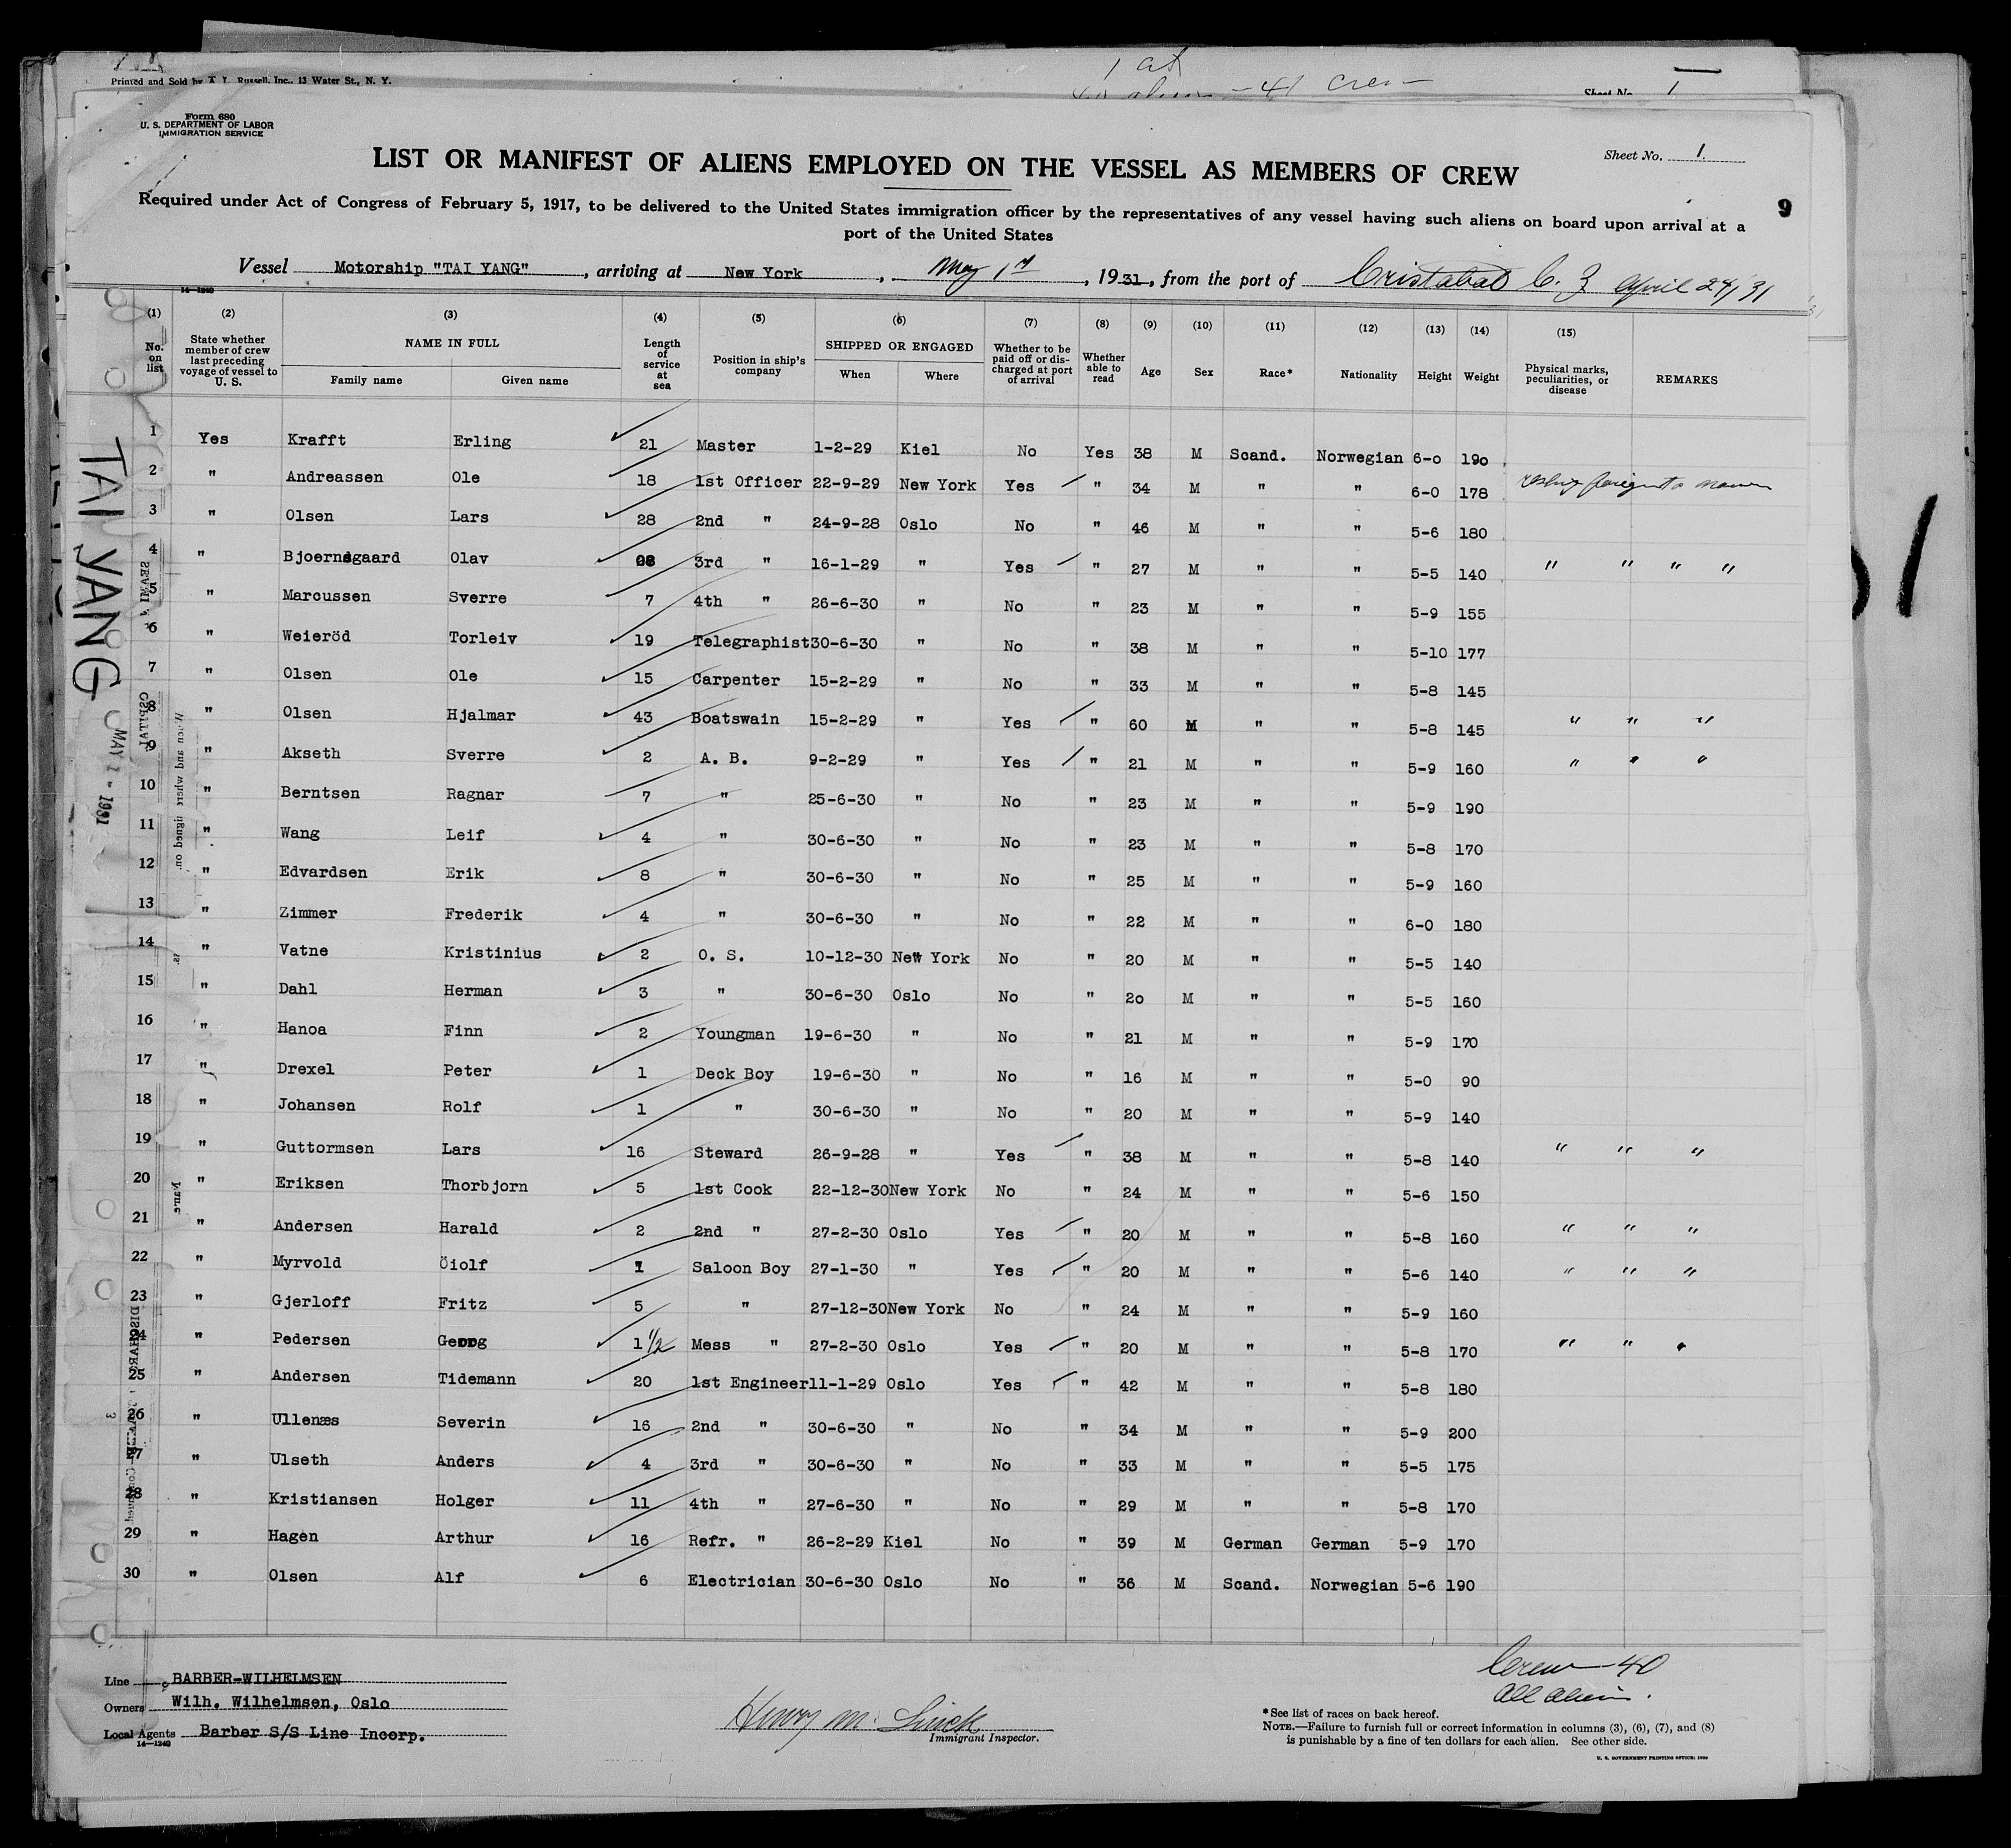 Printed and Sold by A. L. Russell, Inc., 13 Water St., N. Y.
1 at
41 crew
Sheet No. 1
Form 680
U. S. DEPARTMENT OF LABOR
IMMIGRATION SERVICE
Sheet No. 1.
LIST OR MANIFEST OF ALIENS EMPLOYED ON THE VESSEL AS MEMBERS OF CREW
9
Required under Act of Congress of February 5, 1917, to be delivered to the United States immigration officer by the representatives of any vessel having such aliens on board upon arrival at a
port of the United States
Vessel Motorship "TAI YANG", arriving at New York, May 1st, 1931, from the port of Cristabal C. Z April 24/31
14—1240
(1) No. on list
(2) State whether member of crew last preceding voyage of vessel to U. S.
(3) NAME IN FULL Family name Given name
(4) Length of service at sea
(5) Position in ship's company
(6) SHIPPED OR ENGAGED When Where
(7) Whether to be paid off or discharged at port of arrival
(8) Whether able to read
(9) Age
(10) Sex
(11) Race*
(12) Nationality
(13) Height
(14) Weight
(15) Physical marks, peculiarities, or disease
REMARKS
1 Yes Krafft Erling 21 Master 1-2-29 Kiel No Yes 38 M Scand. Norwegian 6-0 190
2 " Andreassen Ole 18 1st Officer 22-9-29 New York Yes " 34 M " " 6-0 178
3 " Olsen Lars 28 2nd " 24-9-28 Oslo No " 46 M " " 5-6 180
4 " Bjoerndgaard Olav 08 3rd " 16-1-29 " Yes " 27 M " " 5-5 140 " " " "
5 " Marcussen Sverre 7 4th " 26-6-30 " No " 23 M " " 5-9 155
6 " Weieröd Torleiv 19 Telegraphist 30-6-30 " No " 38 M " " 5-10 177
7 " Olsen Ole 15 Carpenter 15-2-29 " No " 33 M " " 5-8 145
8 " Olsen Hjalmar 43 Boatswain 15-2-29 " Yes " 60 M " " 5-8 145 " " "
9 " Akseth Sverre 2 A. B. 9-2-29 " Yes " 21 M " " 5-9 160 " " "
10 " Berntsen Ragnar 7 " 25-6-30 " No " 23 M " " 5-9 190
11 " Wang Leif 4 " 30-6-30 " No " 23 M " " 5-8 170
12 " Edvardsen Erik 8 " 30-6-30 " No " 25 M " " 5-9 160
13 " Zimmer Frederik 4 " 30-6-30 " No " 22 M " " 6-0 180
14 " Vatne Kristinius 2 O. S. 10-12-30 New York No " 20 M " " 5-5 140
15 " Dahl Herman 3 " 30-6-30 Oslo No " 20 M " " 5-5 160
16 " Hanoa Finn 2 Youngman 19-6-30 " No " 21 M " " 5-9 170
17 " Drexel Peter 1 Deck Boy 19-6-30 " No " 16 M " " 5-0 90
18 " Johansen Rolf 1 " 30-6-30 " No " 20 M " " 5-9 140
19 " Guttormsen Lars 16 Steward 26-9-28 " Yes " 38 M " " 5-8 140 " " "
20 " Eriksen Thorbjorn 5 1st Cook 22-12-30 New York No " 24 M " " 5-6 150
21 " Andersen Harald 2 2nd " 27-2-30 Oslo Yes " 20 M " " 5-8 160 " " "
22 " Myrvold Öiolf 1 Saloon Boy 27-1-30 " Yes " 20 M " " 5-6 140 " " "
23 " Gjerloff Fritz 5 " 27-12-30 New York No " 24 M " " 5-9 160
24 " Pedersen Georg 1 1/2 Mess " 27-2-30 Oslo Yes " 20 M " " 5-8 170 " " "
25 " Andersen Tidemann 20 1st Engineer 11-1-29 Oslo Yes " 42 M " " 5-8 180
26 " Ullenæs Severin 16 2nd " 30-6-30 " No " 34 M " " 5-9 200
27 " Ulseth Anders 4 3rd " 30-6-30 " No " 33 M " " 5-5 175
28 " Kristiansen Holger 11 4th " 27-6-30 " No " 29 M " " 5-8 170
29 " Hagen Arthur 16 Refr. " 26-2-29 Kiel No " 39 M German German 5-9 170
30 " Olsen Alf 6 Electrician 30-6-30 Oslo No " 36 M Scand. Norwegian 5-6 190
TAI YANG
MAY 1 - 1931
Line BARBER-WILHELMSEN
Owners Wilh. Wilhelmsen, Oslo
Local Agents Barber S/S Line Incorp.
14—1240
Henry M.
Immigrant Inspector.
Crew—40
All aliens.
*See list of races on back hereof.
NOTE.—Failure to furnish full or correct information in columns (3), (6), (7), and (8)
is punishable by a fine of ten dollars for each alien. See other side.
U. S. GOVERNMENT PRINTING OFFICE: 1930